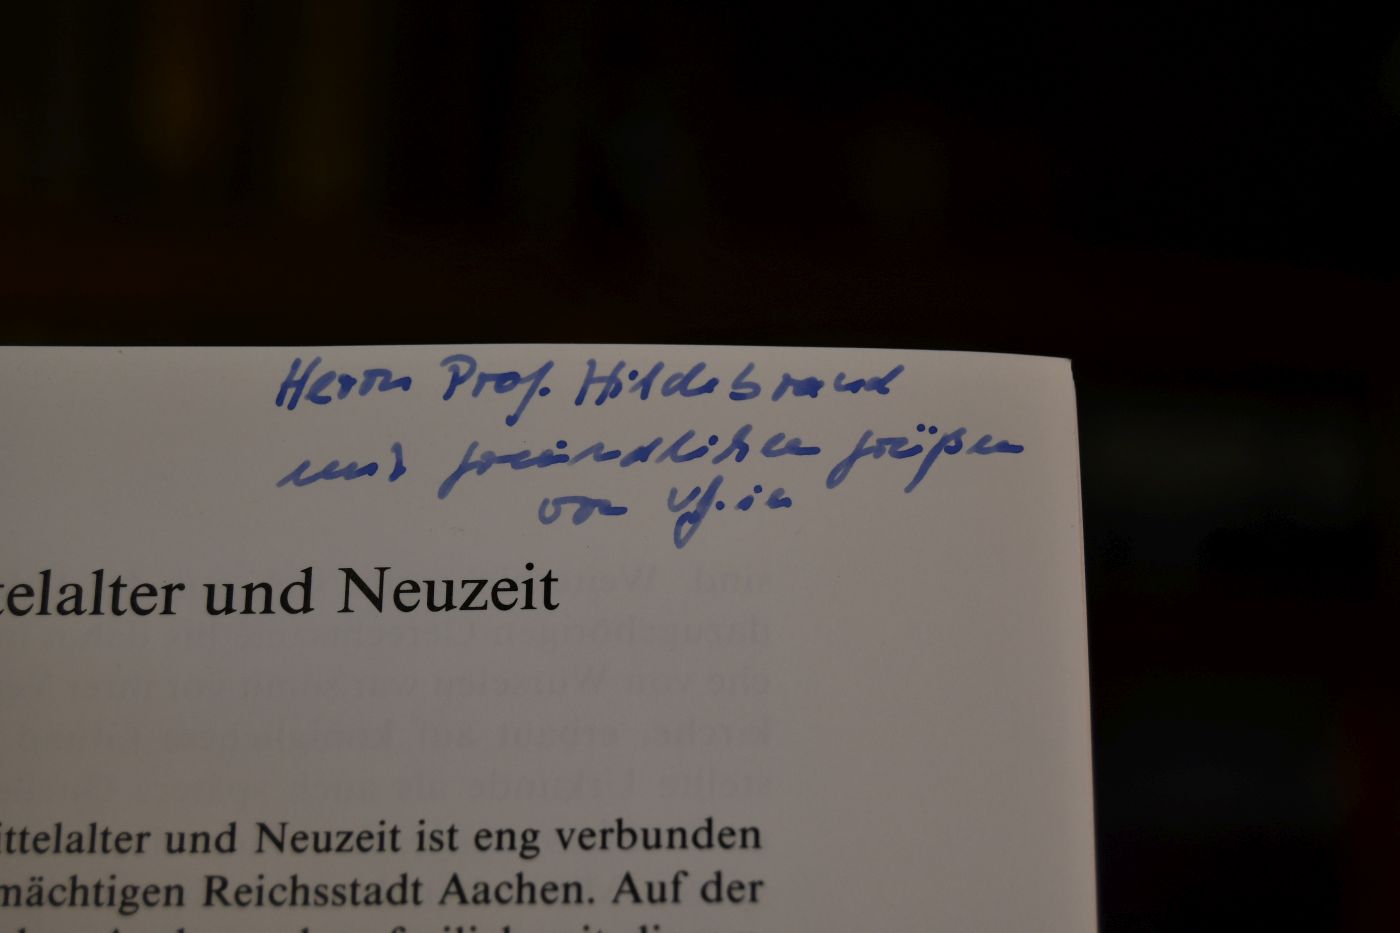 Herrn Prof. Hildebrand
mit freundlichen Grüßen
von Vf.in
telalter und Neuzeit
ittelalter und Neuzeit ist eng verbunden
mächtigen Reichsstadt Aachen. Auf der